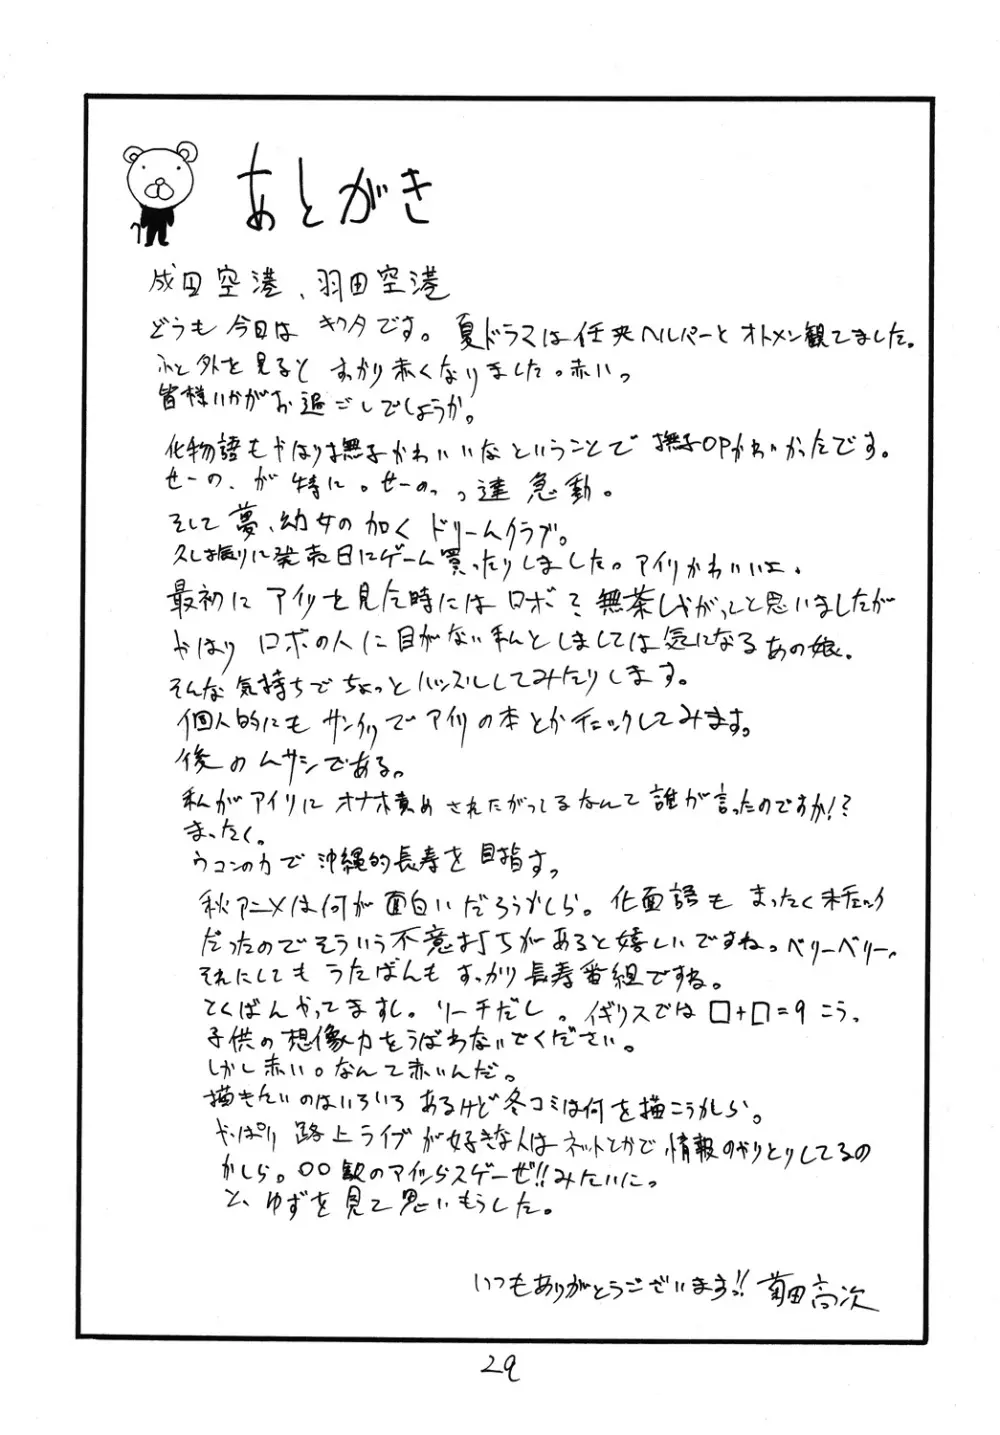 あとがき
成田空港、羽田空港
どうも今日は キクタです。夏ドラマは任侠ヘルパーとオトメン観てました。
ふと外を見ると すっかり赤くなりました。赤いっ
皆様いかがお過ごしでしょうか。
化物語もやはり撫子かわいいなということで撫子OPかわいかったです。
せーの、が特に。せーのっ
そして夢、幼女の如くドリームクラブ。
久し振りに発売日にゲーム買ったりしました。アイリかわいいよ、
最初にアイリを見た時にはロボて無茶しやがってと思いましたが
やはりロボの人に目がない私としましては気になるあの娘、
そんな気持ちでちょっとハッスルしてみたりします。
個人的にもサンクリでアイリの本とかチェックしてみます。
後のムサシである。
私がアイリにオナホ責めされたがってるなんて誰が言ったのですか!?
まったく。
ウコンの力で沖縄的長寿を目指す。
秋アニメは何が面白いだろうかしら。化物語もまったく未チェック
だったのでそういう不意打ちがあると嬉しいですねっベリーベリー、
それにしてもうたばんもすっかり長寿番組ですね。
とくばんやってますし。リーチだし。イギリスでは□+□=9 こう、
子供の想像力をうばわないでください。
しかし赤い。なんて赤いんだ。
描きたいのはいろいろあるけど冬コミは何を描こうかしら。
やっぱり路上ライブが好きな人はネットとかで情報のやりとりしてるの
かしら。○○駅のアイツらスゲーぜ!!みたいにっ
と、ゆずを見て思いもうした。
いつもありがとうございますっ!! 菊田高次
29